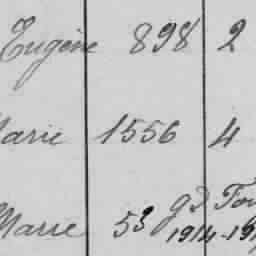 Eugène 898 2
Marie 1556 4
Marie 53 gd
1914-19